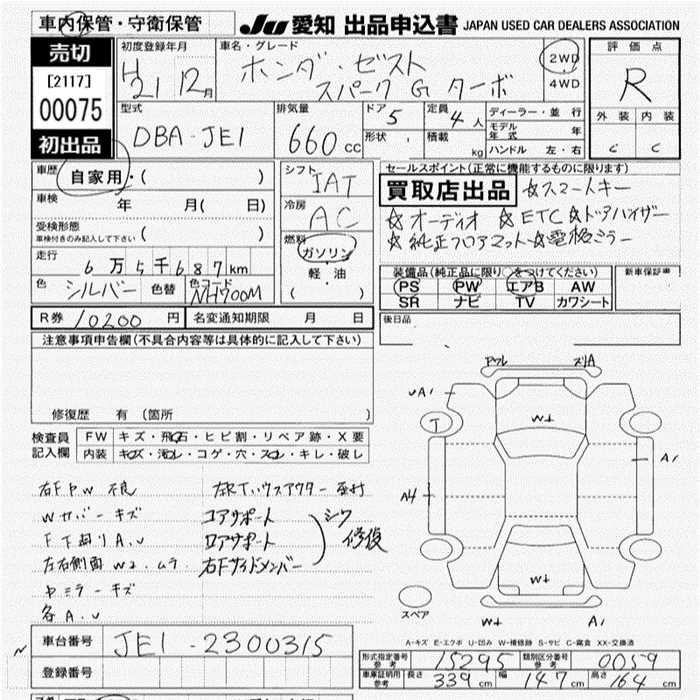 車内保管・守衛保管
JU 愛知 出品申込書 JAPAN USED CAR DEALERS ASSOCIATION
売切
[2117]
00075
初出品
初度登録年月
H 21 12月
車名・グレード
ホンダ・ゼスト
スパーク G ターボ
2WD
4WD
評価点
R
外装 内装
C C
型式
DBA-JE1
排気量
660 cc
ドア 5
形状
定員 4 人
積載 kg
ディーラー・並行
モデル年式 年
ハンドル 左・右
車歴
自家用・( )
車検 年 月( 日)
受検形態
車検付きのみ記入して下さい ( )
走行
6万5千687km
色 シルバー 色替 色コード NH700M
シフト
IAT
冷房
AC
燃料
ガソリン
軽・油
( )
セールスポイント(正常に機能するものに限ります)
買取店出品 ☆スマートキー
☆オーディオ ☆ETC ☆ドアバイザー
☆純正フロアマット ☆電格ミラー
装備品(純正品に限り○をつけてください) 新車保証書
PS PW エアB AW
SR ナビ TV カワシート
R券 10200 円 名変通知期限 月 日
後日品
注意事項申告欄(不具合内容等は具体的に記入して下さい)
修復歴 有 (箇所 )
検査員 記入欄
FW キズ・飛石・ヒビ割・リペア跡・X要
内装 キズ・汚レ・コゲ・穴・スレ・キレ・破レ
右F PW 不良
Wカバーキズ
F下廻りA.U
左右側面W2.ムラ
ドミラーキズ
各A.U
コアサポート
ロアサポート
右Fサイドメンバー
シワ
修復
スリA
UA1
T
W2
A1
A4
W2
スペア
W2 A1
A-キズ E-エクボ U-凹み W-補修跡 S-サビ C-腐食 XX-交換済
車台番号 JE1-2300315
登録番号
型式指定番号 参考 15295 類別区分番号 参考 0059
車庫証明用 参考 長さ 339 cm 幅 147 cm 高さ 164 cm